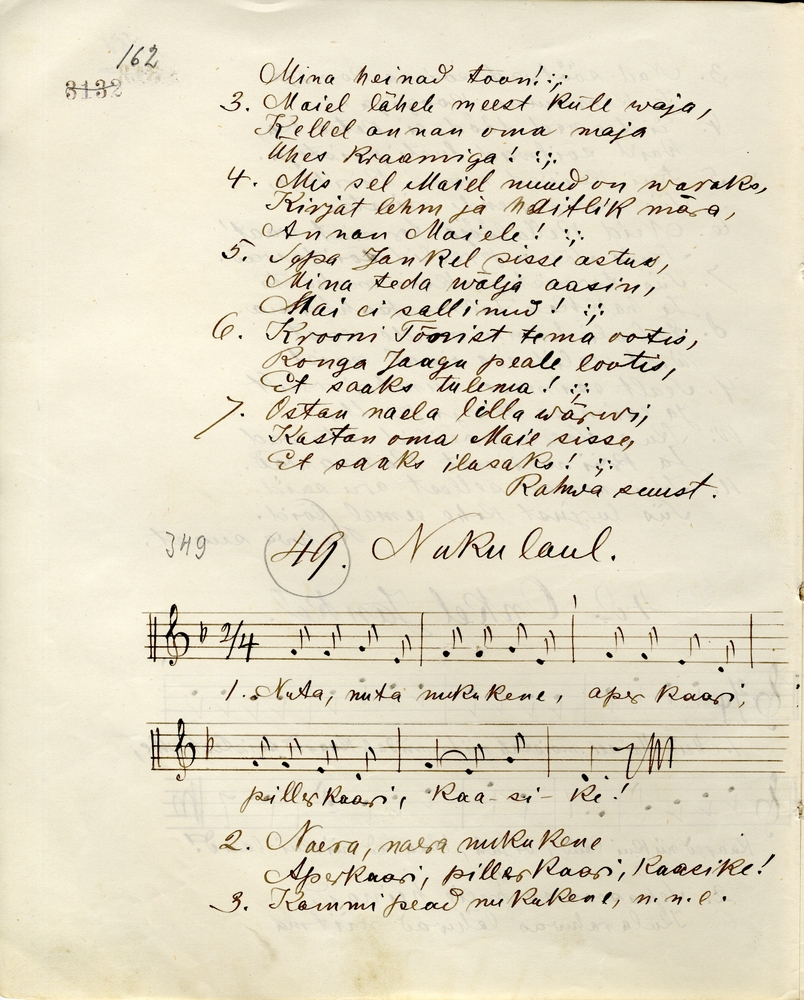 162
3132
Mina heinad toon! :;:
3. Maiel läheb meest küll waja,
Kellel annan oma maja
Ühes kraamiga! :;:
4. Mis sel Maiel nuud on waraks,
Kirjat lehm ja mära,
Annan Maiele! :;:
5. Sepa Jankel sisse astus,
Mina teda wälja aasin,
Mai ei sallinud! :;:
6. Krooni Tõnist tema ootis,
Ronga Jaagu peale lootis,
Et saaks tulema! :;:
7. Ostan naela lilla wärwi,
Kastan oma Maie sisse,
Et saaks ilusaks! :;:
Rahwa suust.
349 49. Nuku laul.
2/4
1. Nuta, nuta nukukene, aper kaari,
piller kaari, kaa-si-ke!
2. Naera, naera nukukene
Aperkaari, pillerkaari, kaasike!
3. Kammi pead nukukene, n.n.e.